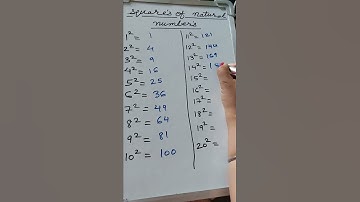 Squares of natural
numbers
1² = 1
2² = 4
3² = 9
4² = 16
5² = 25
6² = 36
7² = 49
8² = 64
9² = 81
10² = 100
11² = 121
12² = 144
13² = 169
14² =
15² =
16² =
17² =
18² =
19² =
20² =